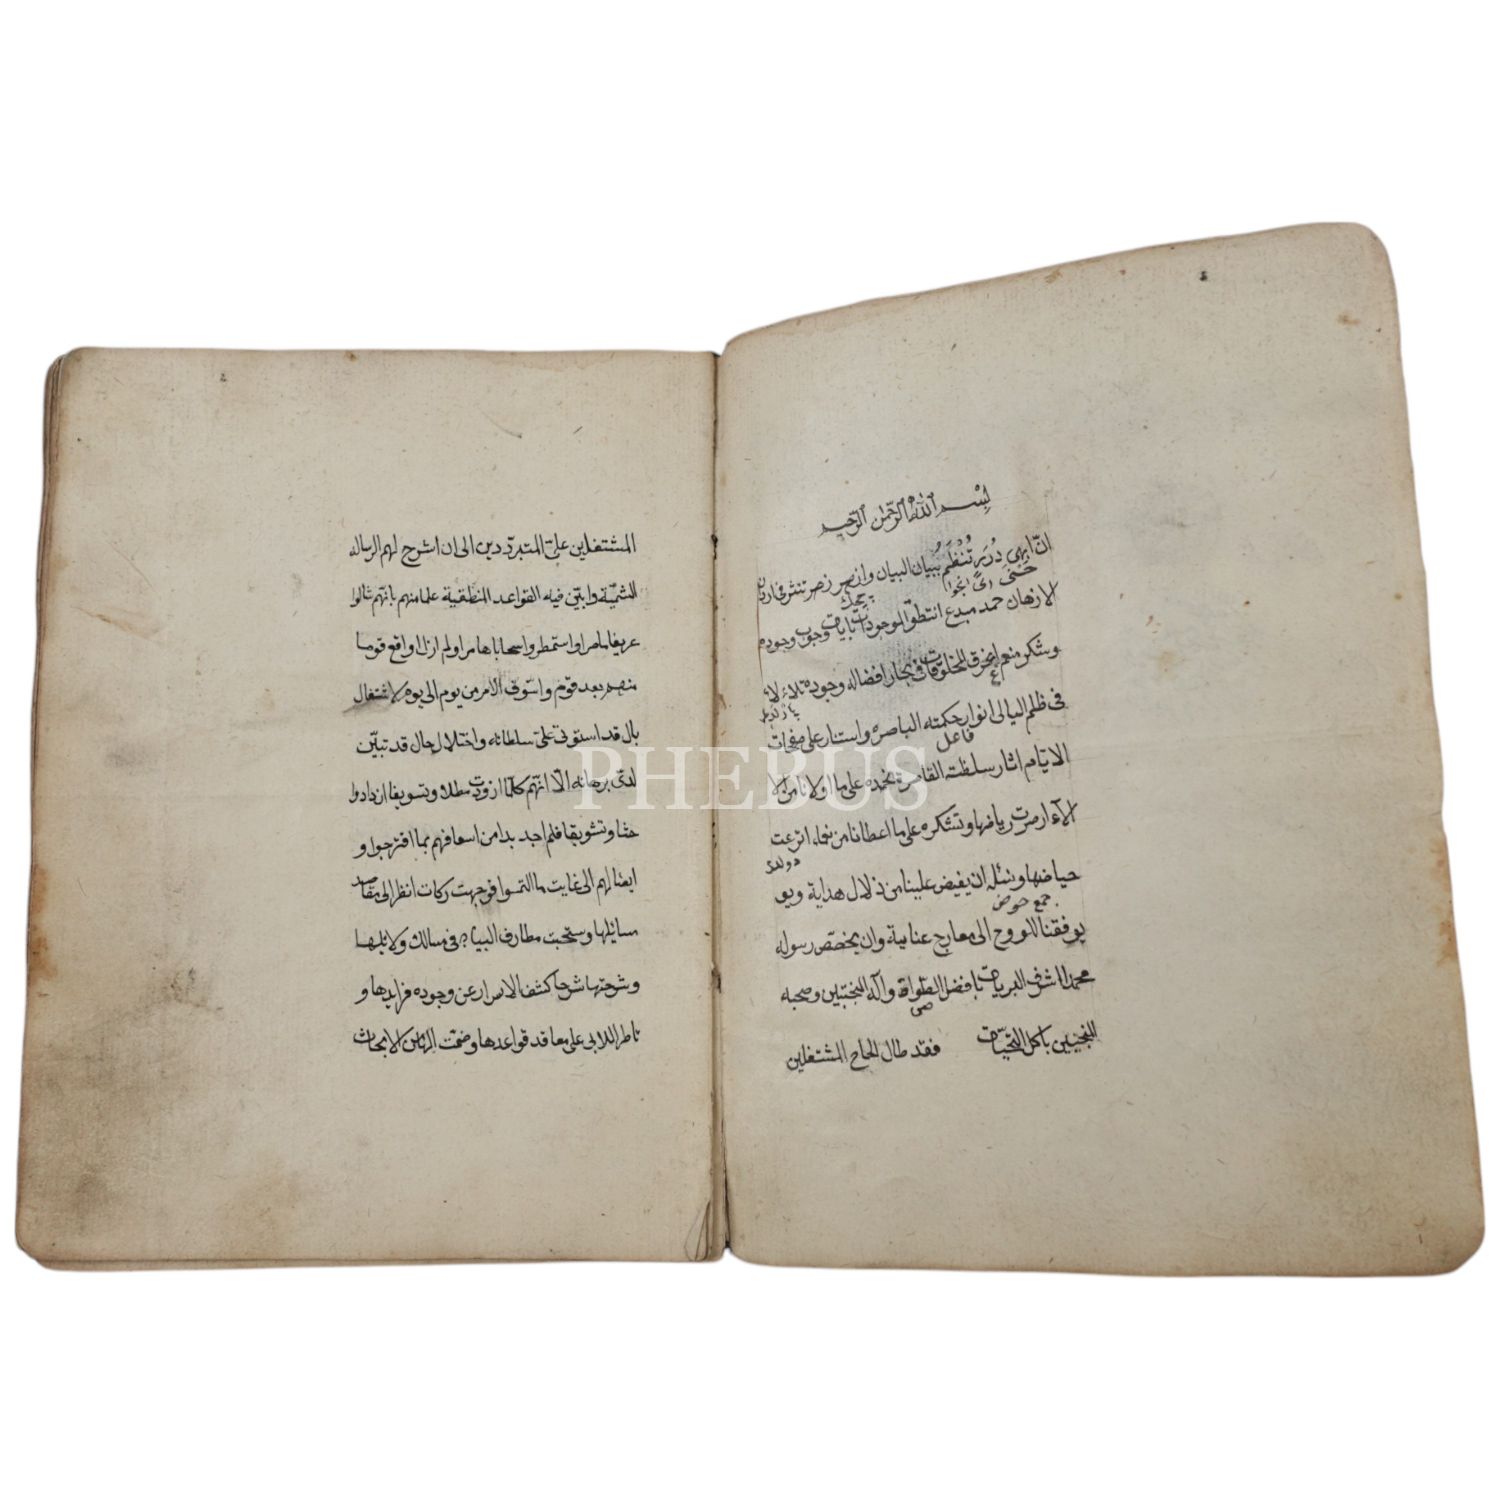 بسم الله الرحمن الرحيم
انّ ابهى دُرَرٍ تُنْظَم ببيان البيان وازهر زهر تنثر فى اردان
الاذهان حمد مبدع انطق الموجودات بآيات وجوب وجوده
وشكر منعم اغرق المخلوقات فى بحار افضاله وجوده تلاءلاء
فى ظلم اليالى انوار حكمته الباصره واستنار على صفحات
فاعل
الايام اثار سلطنته القاهرة نحمده على ما اولانا من الا
الآء ازهرت رياضها ونشكره على ما اعطانا من نعماء اترعت
حياضها ونسئله ان يفيض علينا من ذلال هداية ويو
جمع حوض
يوفقنا للعروج الى معارج عناية وان يخصّص رسوله
محمدا اشرف البريات بافضل الصّلواة وآله المنتجبين وصحبه
المنتجبين باكمل التحيّات فقد طال الحاح المشتغلين
المشتغلين علىّ المتردّدين الى ان اشرح لهم الرساله
الشمسيّة وابيّن فيه القواعد المنطقية علما منهم بانّهم سالوا
عريفا ماهرا واستمطروا سحابا هامرا ولم ازل ادافع قوما
منهم بعد قوم واسوّف الامر من يوم الى يوم لاشتغال
بال قد استولى علىّ سلطانه واختلال حال قد تبيّن
لدىّ برهانه الاّ انّهم كلّما ازددت مطلا وتسويفا ازدادوا
حثا وتشويقا فلم اجد بدا من اسعافهم بما اقترحوا و
ايصالهم الى غايت ما التمسوا فوجهت ركاب النظر الى مقاصد
مسائلها وسحبت مطارف البيان فى مسالك دلائلها
وشرحتها شرحا كشف الاسرار عن وجوه فرايدها و
ناط اللالى على معاقد قواعدها وضمّت اليها من الابحاث
PHEBUS